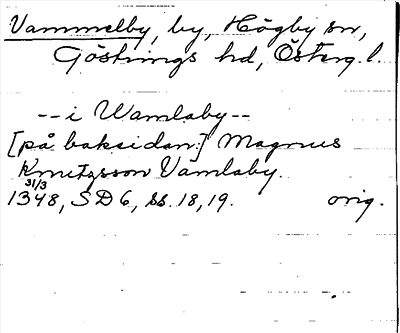 Vammelby, by, Högby sn,
Göstrings hd, Österg. l.
-- i Wamlaby --
[på baksidan:] Magnus
Knutzsson Vamlaby.
31/3
1348, SD 6, ss. 18, 19. orig.